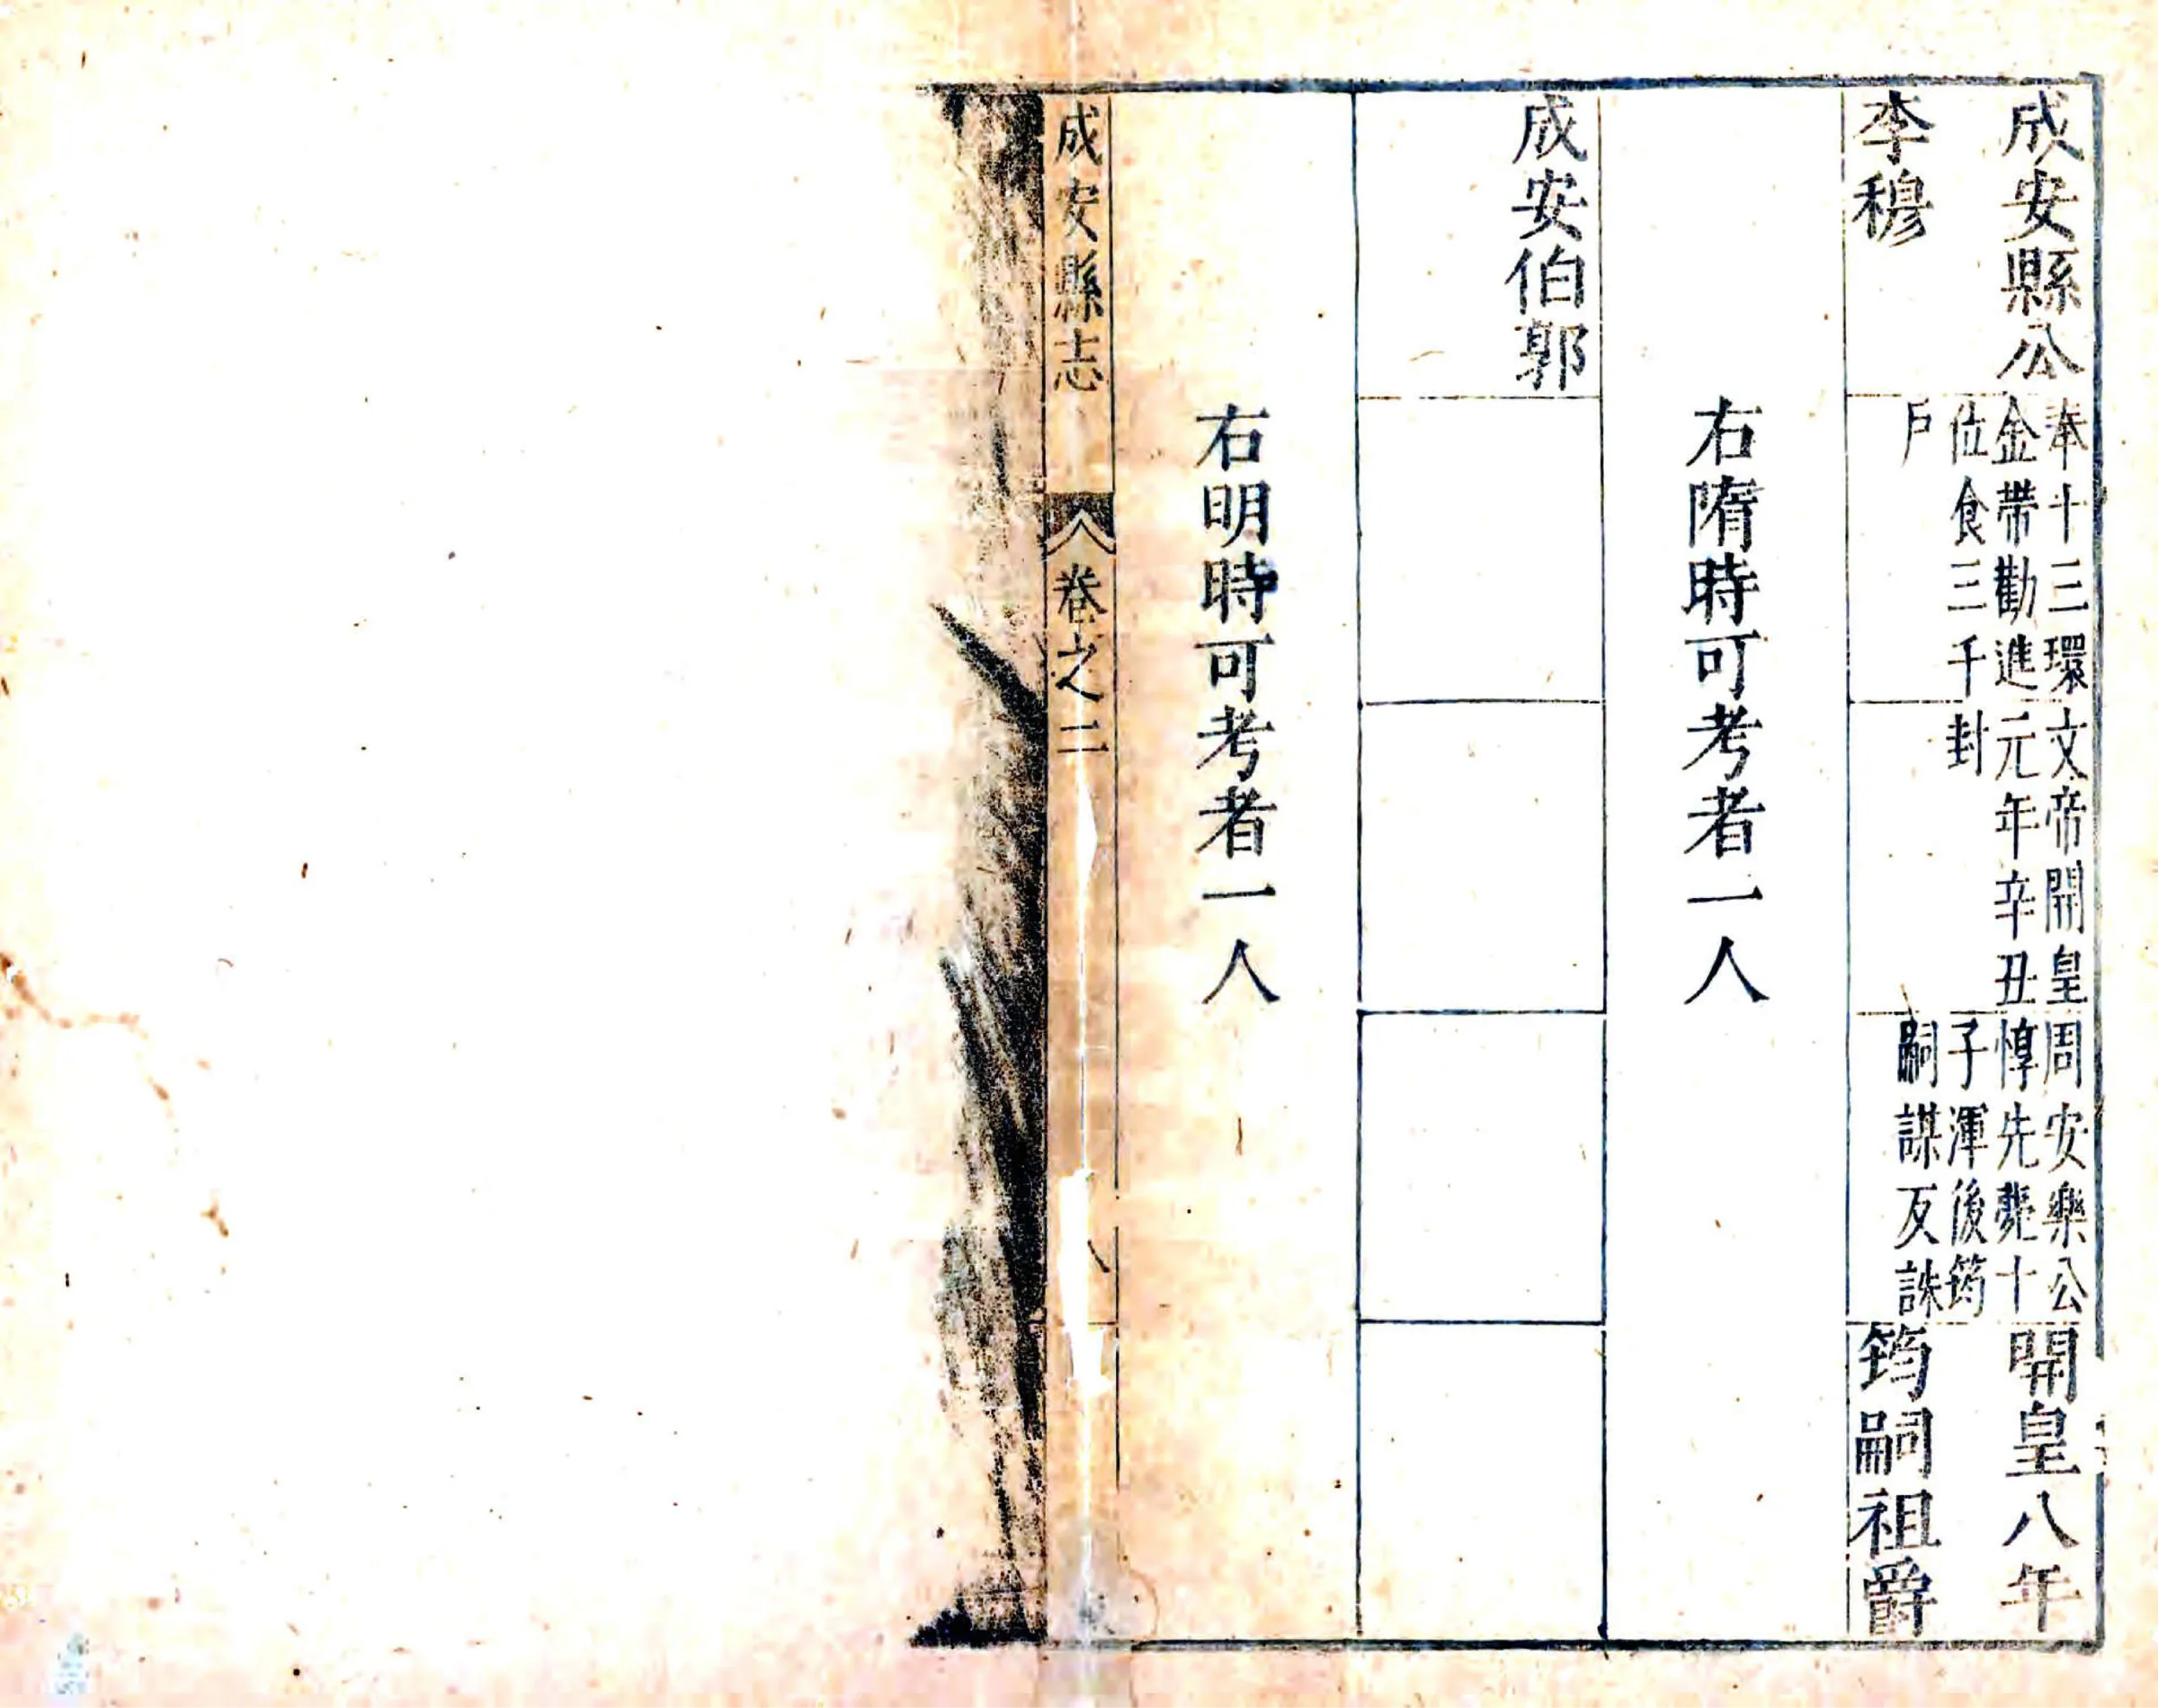 成安縣公
李穆
奉十三環
金帶勸進
位食三千
戶
文帝開皇
元年辛丑
封
周安樂公
惇先薨十
子渾後筠
嗣謀反誅
開皇八年
筠嗣祖爵
右隋時可考者一人
成安伯郭
右明時可考者一人
成安縣志
卷之二
八